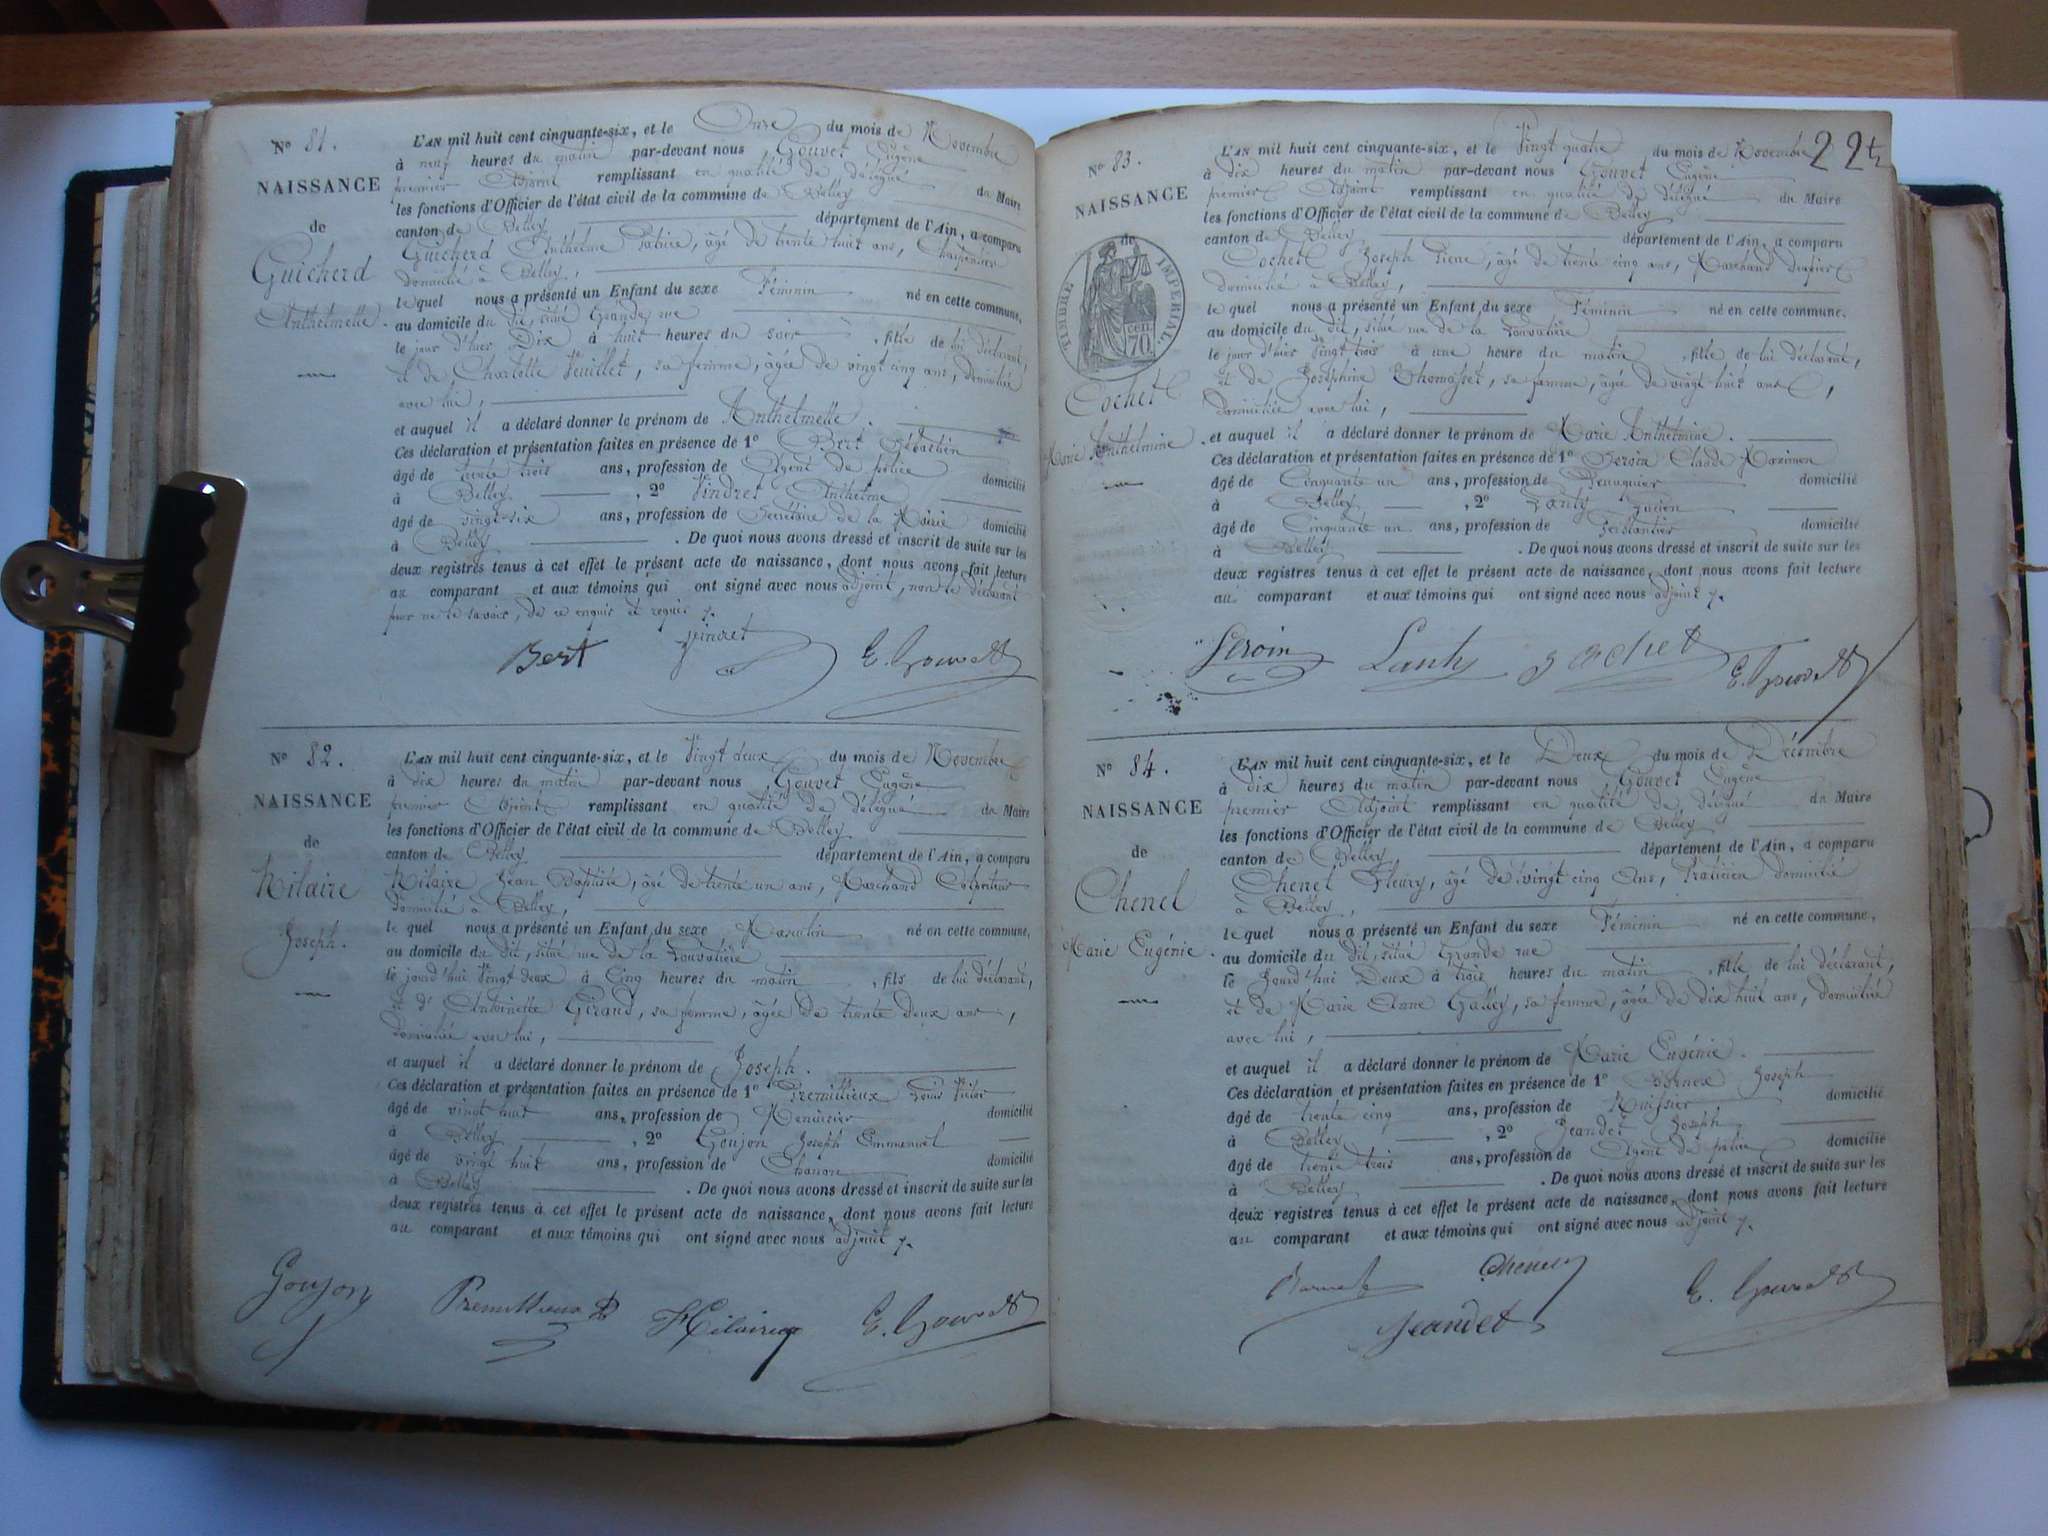 N° 81.
NAISSANCE
de
Guicherd
Anthelmette.
L'AN mil huit cent cinquante-six, et le Onze du mois de Novembre
à neuf heures du matin par-devant nous Gouvet Eugène
premier Adjoint remplissant en qualité de délégué du Maire
les fonctions d'Officier de l'état civil de la commune de Belley
canton de Belley département de l'Ain, a comparu
Guicherd Anthelme âgé de trente huit ans, Charpentier
domicilié à Belley,
le quel nous a présenté un Enfant du sexe Féminin né en cette commune,
au domicile du dit, situé Grande rue
le jour d'hier Dix à huit heures du soir, fille de lui déclarant,
et de Charlotte Veuillet, sa femme, âgée de vingt cinq ans, domiciliée
avec lui,
et auquel il a déclaré donner le prénom de Anthelmette.
Ces déclaration et présentation faites en présence de 1° Bert Sébastien
âgé de trente trois ans, profession de Agent de police domicilié
à Belley, 2° Vindret Anthelme
âgé de vingt-six ans, profession de Secrétaire de la Mairie domicilié
à Belley. De quoi nous avons dressé et inscrit de suite sur les
deux registres tenus à cet effet le présent acte de naissance, dont nous avons fait lecture
au comparant et aux témoins qui ont signé avec nous adjoint, non le déclarant
pour ne le savoir, de ce enquis et requis.
Bert Vindret E. Gouvet
N° 82.
NAISSANCE
de
Hilaire
Joseph.
L'AN mil huit cent cinquante-six, et le Vingt deux du mois de Novembre
à dix heures du matin par-devant nous Gouvet Eugène
premier Adjoint remplissant en qualité de délégué du Maire
les fonctions d'Officier de l'état civil de la commune de Belley
canton de Belley département de l'Ain, a comparu
Hilaire Jean Baptiste, âgé de trente un ans, Marchand Colporteur
domicilié à Belley,
le quel nous a présenté un Enfant du sexe Masculin né en cette commune,
au domicile du dit, situé rue de la Louvatière
le jourd'hui Vingt deux à Cinq heures du matin, fils de lui déclarant,
et d'Antoinette Giraud, sa femme, âgée de trente deux ans,
domiciliée avec lui,
et auquel il a déclaré donner le prénom de Joseph.
Ces déclaration et présentation faites en présence de 1° Premillieux Louis Victor
âgé de vingt huit ans, profession de Menuisier domicilié
à Belley, 2° Goujon Joseph Emmanuel
âgé de vingt huit ans, profession de domicilié
à Belley. De quoi nous avons dressé et inscrit de suite sur les
deux registres tenus à cet effet le présent acte de naissance, dont nous avons fait lecture
au comparant et aux témoins qui ont signé avec nous adjoint
Goujon Premillieux Hilaire E. Gouvet
22
N° 83.
NAISSANCE
de
TIMBRE IMPERIAL.
70 cen
Cochet
Marie Anthelmine.
L'AN mil huit cent cinquante-six, et le Vingt quatre du mois de Novembre
à dix heures du matin par-devant nous Gouvet Eugène
premier Adjoint remplissant en qualité de délégué du Maire
les fonctions d'Officier de l'état civil de la commune de Belley
canton de Belley département de l'Ain, a comparu
Cochet Joseph Pierre, âgé de trente cinq ans, Marchand drapier
domicilié à Belley,
le quel nous a présenté un Enfant du sexe Féminin né en cette commune.
au domicile du dit, situé rue de la Louvatière
le jour d'hier Vingt trois à une heure du matin, fille de lui déclarant,
et de Joséphine Thomasset, sa femme, âgée de vingt huit ans,
domiciliée avec lui,
et auquel il a déclaré donner le prénom de Marie Anthelmine.
Ces déclaration et présentation faites en présence de 1° Claude Maximin
âgé de Cinquante un ans, profession de Perruquier domicilié
à Belley, 2° Lanly Lucien
âgé de Cinquante un ans, profession de Ferblantier domicilié
à Belley. De quoi nous avons dressé et inscrit de suite sur les
deux registres tenus à cet effet le présent acte de naissance, dont nous avons fait lecture
au comparant et aux témoins qui ont signé avec nous adjoint
J Cochet E. Gouvet
N° 84.
NAISSANCE
de
Chenel
Marie Eugénie.
L'AN mil huit cent cinquante-six, et le Deux du mois de Décembre
à dix heures du matin par-devant nous Gouvet Eugène
premier Adjoint remplissant en qualité de délégué du Maire
les fonctions d'Officier de l'état civil de la commune de Belley
canton de Belley département de l'Ain, a comparu
Chenel Fleury, âgé de vingt cinq Ans, Praticien domicilié
à Belley,
le quel nous a présenté un Enfant du sexe Féminin né en cette commune,
au domicile du dit, situé Grande rue
le Jourd'hui Deux à trois heures du matin, fille de lui déclarant,
et de Marie Anne Galley, sa femme, âgée de dix huit ans, domiciliée
avec lui,
et auquel il a déclaré donner le prénom de Marie Eugénie.
Ces déclaration et présentation faites en présence de 1° Joseph
âgé de trente cinq ans, profession de Huissier domicilié
à Belley, 2° Jeandet Joseph
âgé de trente trois ans, profession de Agent de police domicilié
à Belley. De quoi nous avons dressé et inscrit de suite sur les
deux registres tenus à cet effet le présent acte de naissance, dont nous avons fait lecture
au comparant et aux témoins qui ont signé avec nous adjoint
Chenel E. Gouvet
Jeandet